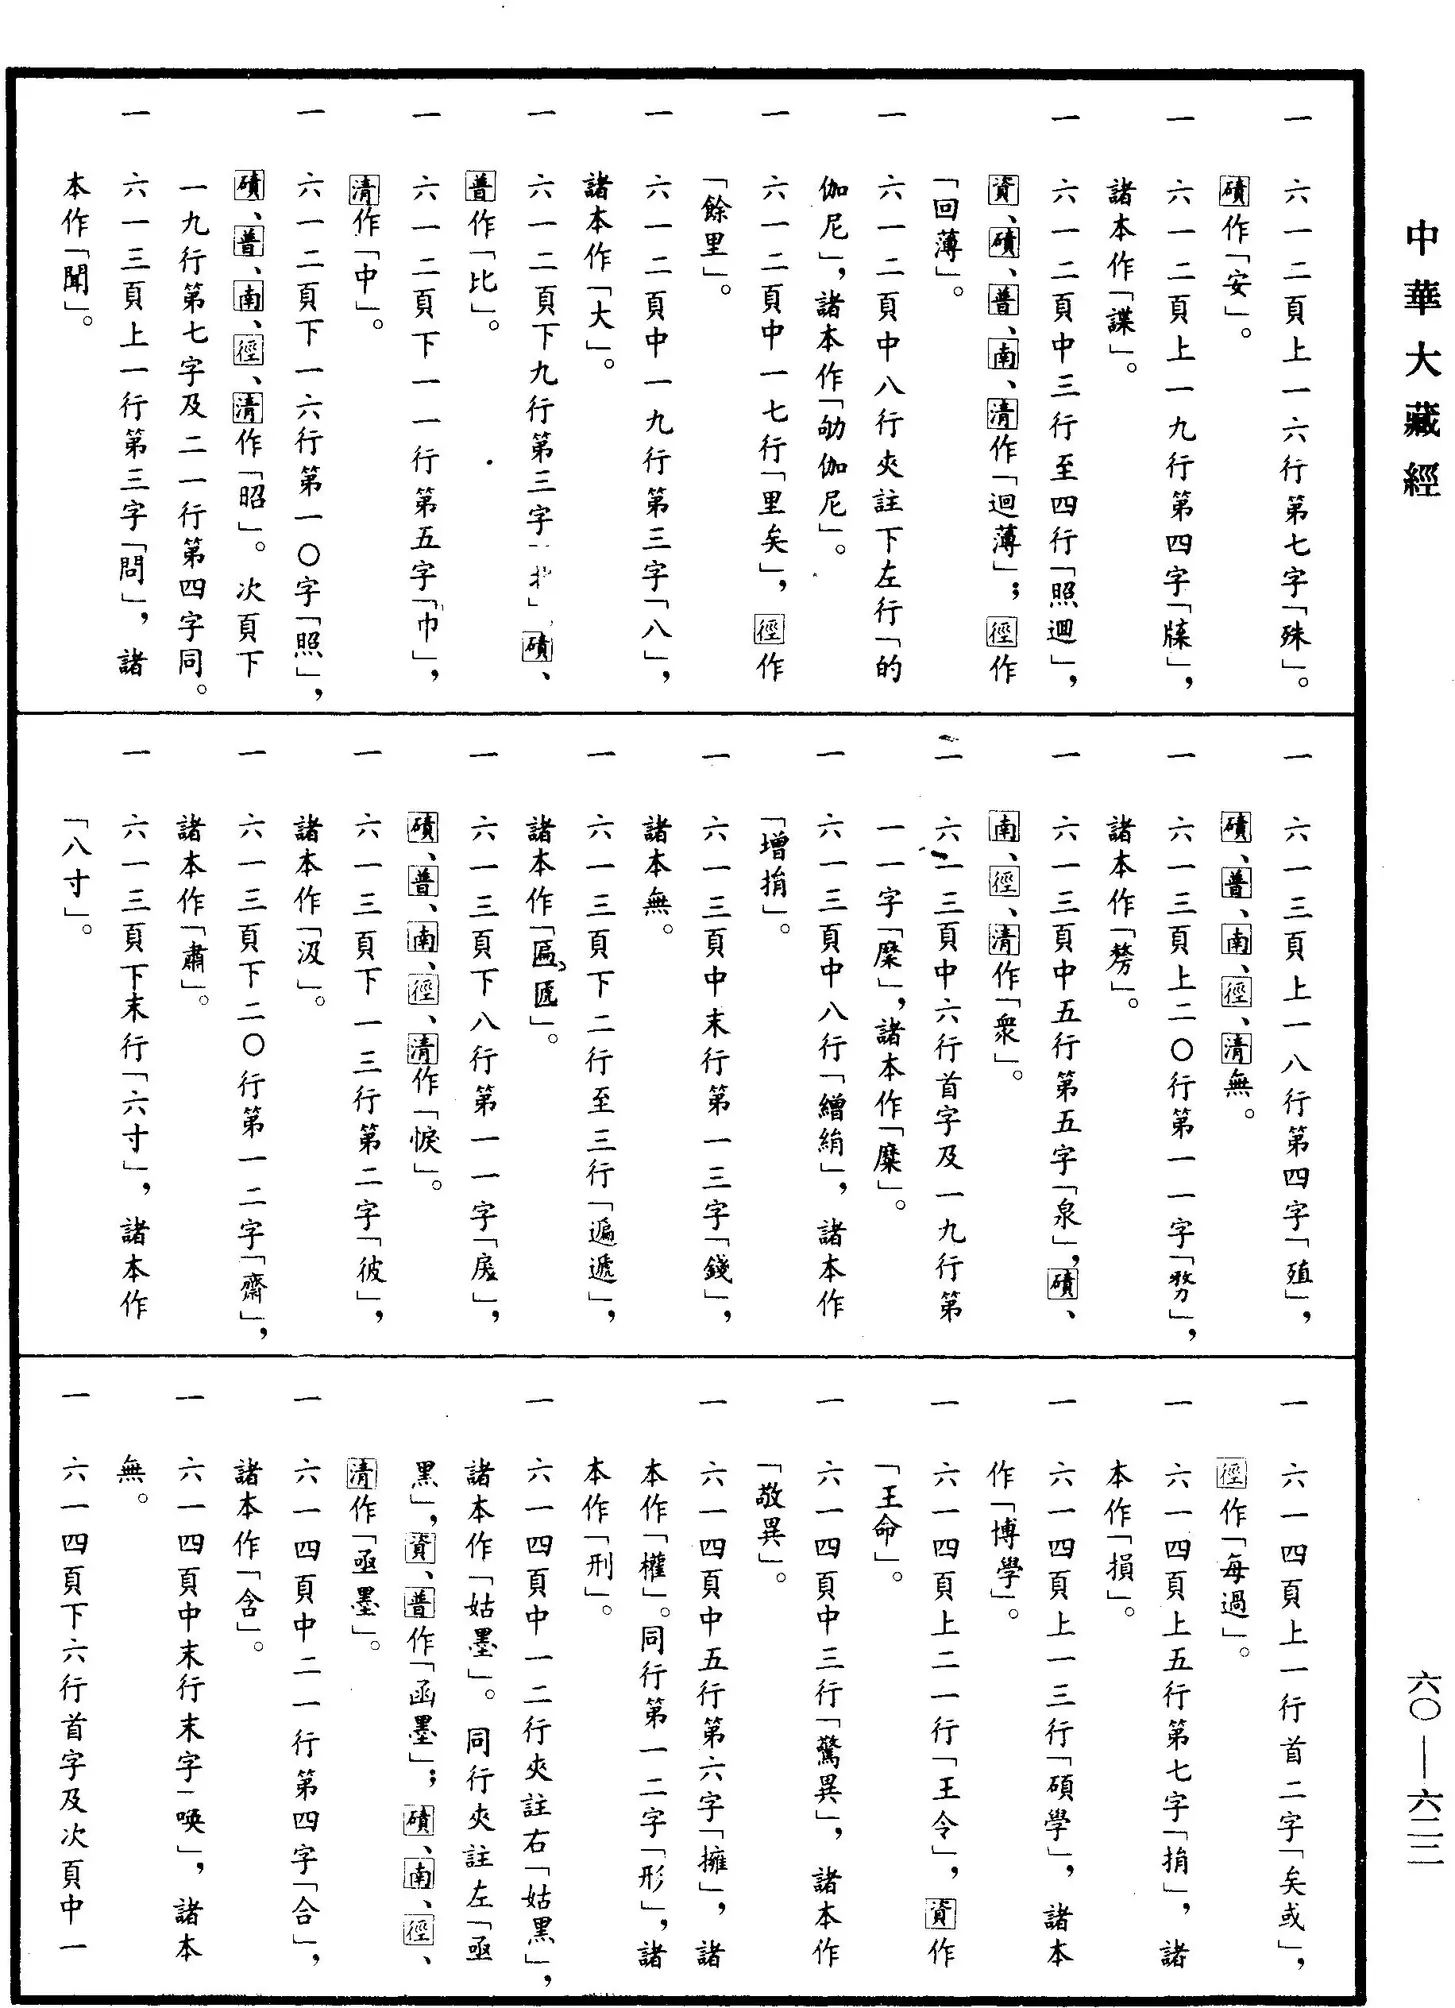 中華大藏經
一　六一二頁上一六行第七字「殊」。
磧作「安」。
一　六一二頁上一九行第四字「牒」，
諸本作「諜」。
一　六一二頁中三行至四行「照迴」，
資、磧、普、南、清作「迴薄」；徑作
「回薄」。
一　六一二頁中八行夾註下左行「的
伽尼」，諸本作「劬伽尼」。
一　六一二頁中一七行「里矣」，徑作
「餘里」。
一　六一二頁中一九行第三字「八」，
諸本作「大」。
一　六一二頁下九行第三字「北」，磧、
普作「比」。
一　六一二頁下一一行第五字「巾」，
清作「中」。
一　六一二頁下一六行第一〇字「照」，
磧、普、南、徑、清作「昭」。次頁下
一九行第七字及二一行第四字同。
一　六一三頁上一行第三字「問」，諸
本作「聞」。
一　六一三頁上一八行第四字「殖」，
磧、普、南、徑、清無。
一　六一三頁上二〇行第一一字「剺」，
諸本作「剺」。
一　六一三頁中五行第五字「泉」，磧、
南、徑、清作「衆」。
一　六一三頁中六行首字及一九行第
一一字「糜」，諸本作「糜」。
一　六一三頁中八行「繒絹」，諸本作
「增捐」。
一　六一三頁中末行第一三字「錢」，
諸本無。
一　六一三頁下二行至三行「遍遞」，
諸本作「匾㔸」。
一　六一三頁下八行第一一字「戾」，
磧、普、南、徑、清作「悷」。
一　六一三頁下一三行第二字「彼」，
諸本作「汲」。
一　六一三頁下二〇行第一二字「齋」，
諸本作「肅」。
一　六一三頁下末行「六寸」，諸本作
「八寸」。
一　六一四頁上一行首二字「矣或」，
徑作「每過」。
一　六一四頁上五行第七字「捐」，諸
本作「損」。
一　六一四頁上一三行「碩學」，諸本
作「博學」。
一　六一四頁上二一行「王令」，資作
「王命」。
一　六一四頁中三行「驚異」，諸本作
「敬異」。
一　六一四頁中五行第六字「擁」，諸
本作「權」。同行第一二字「形」，諸
本作「刑」。
一　六一四頁中一二行夾註右「姑黑」，
諸本作「姑墨」。同行夾註左「亟
黑」，資、普作「函墨」；磧、南、徑、
清作「亟墨」。
一　六一四頁中二一行第四字「合」，
諸本作「含」。
一　六一四頁中末行末字「喚」，諸本
無。
一　六一四頁下六行首字及次頁中一
六〇——六二二